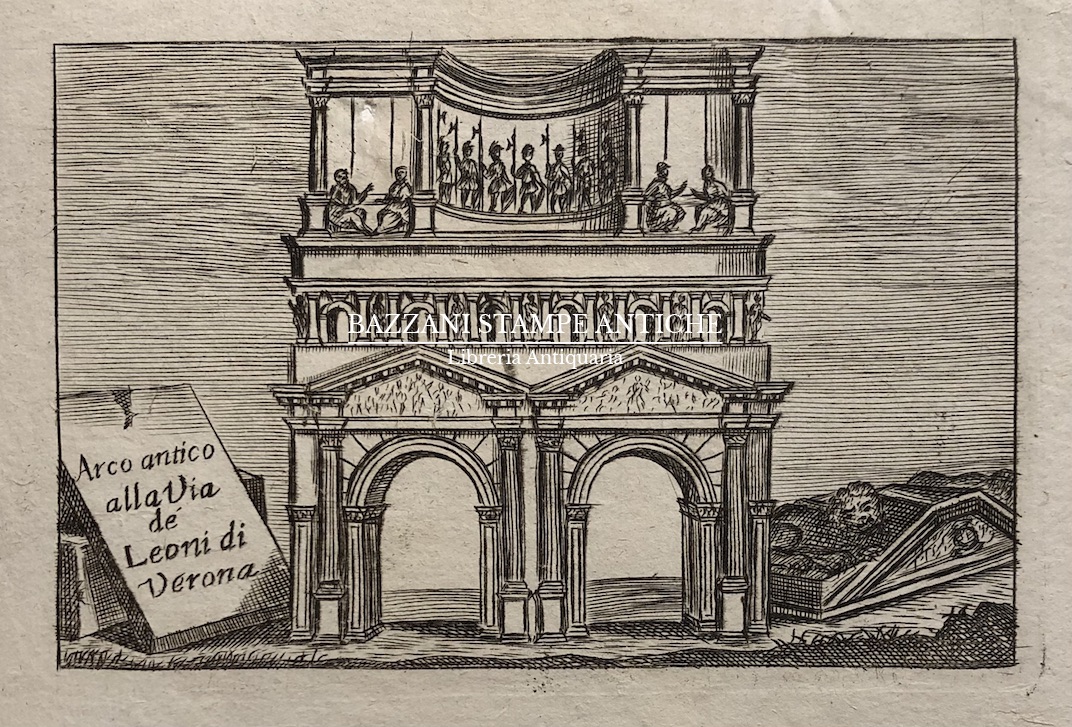 BAZZANI STAMPE ANTICHE
Libreria Antiquaria
Arco antico
alla Via
dé
Leoni di
Verona